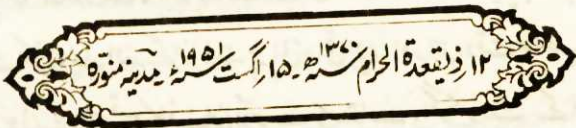 ۱۲ر ذیقعدۃ الحرام ۱۳۷۰ھ ۔ ۱۵ر اگست ۱۹۵۱ء ۔ مدینہ منوّرہ